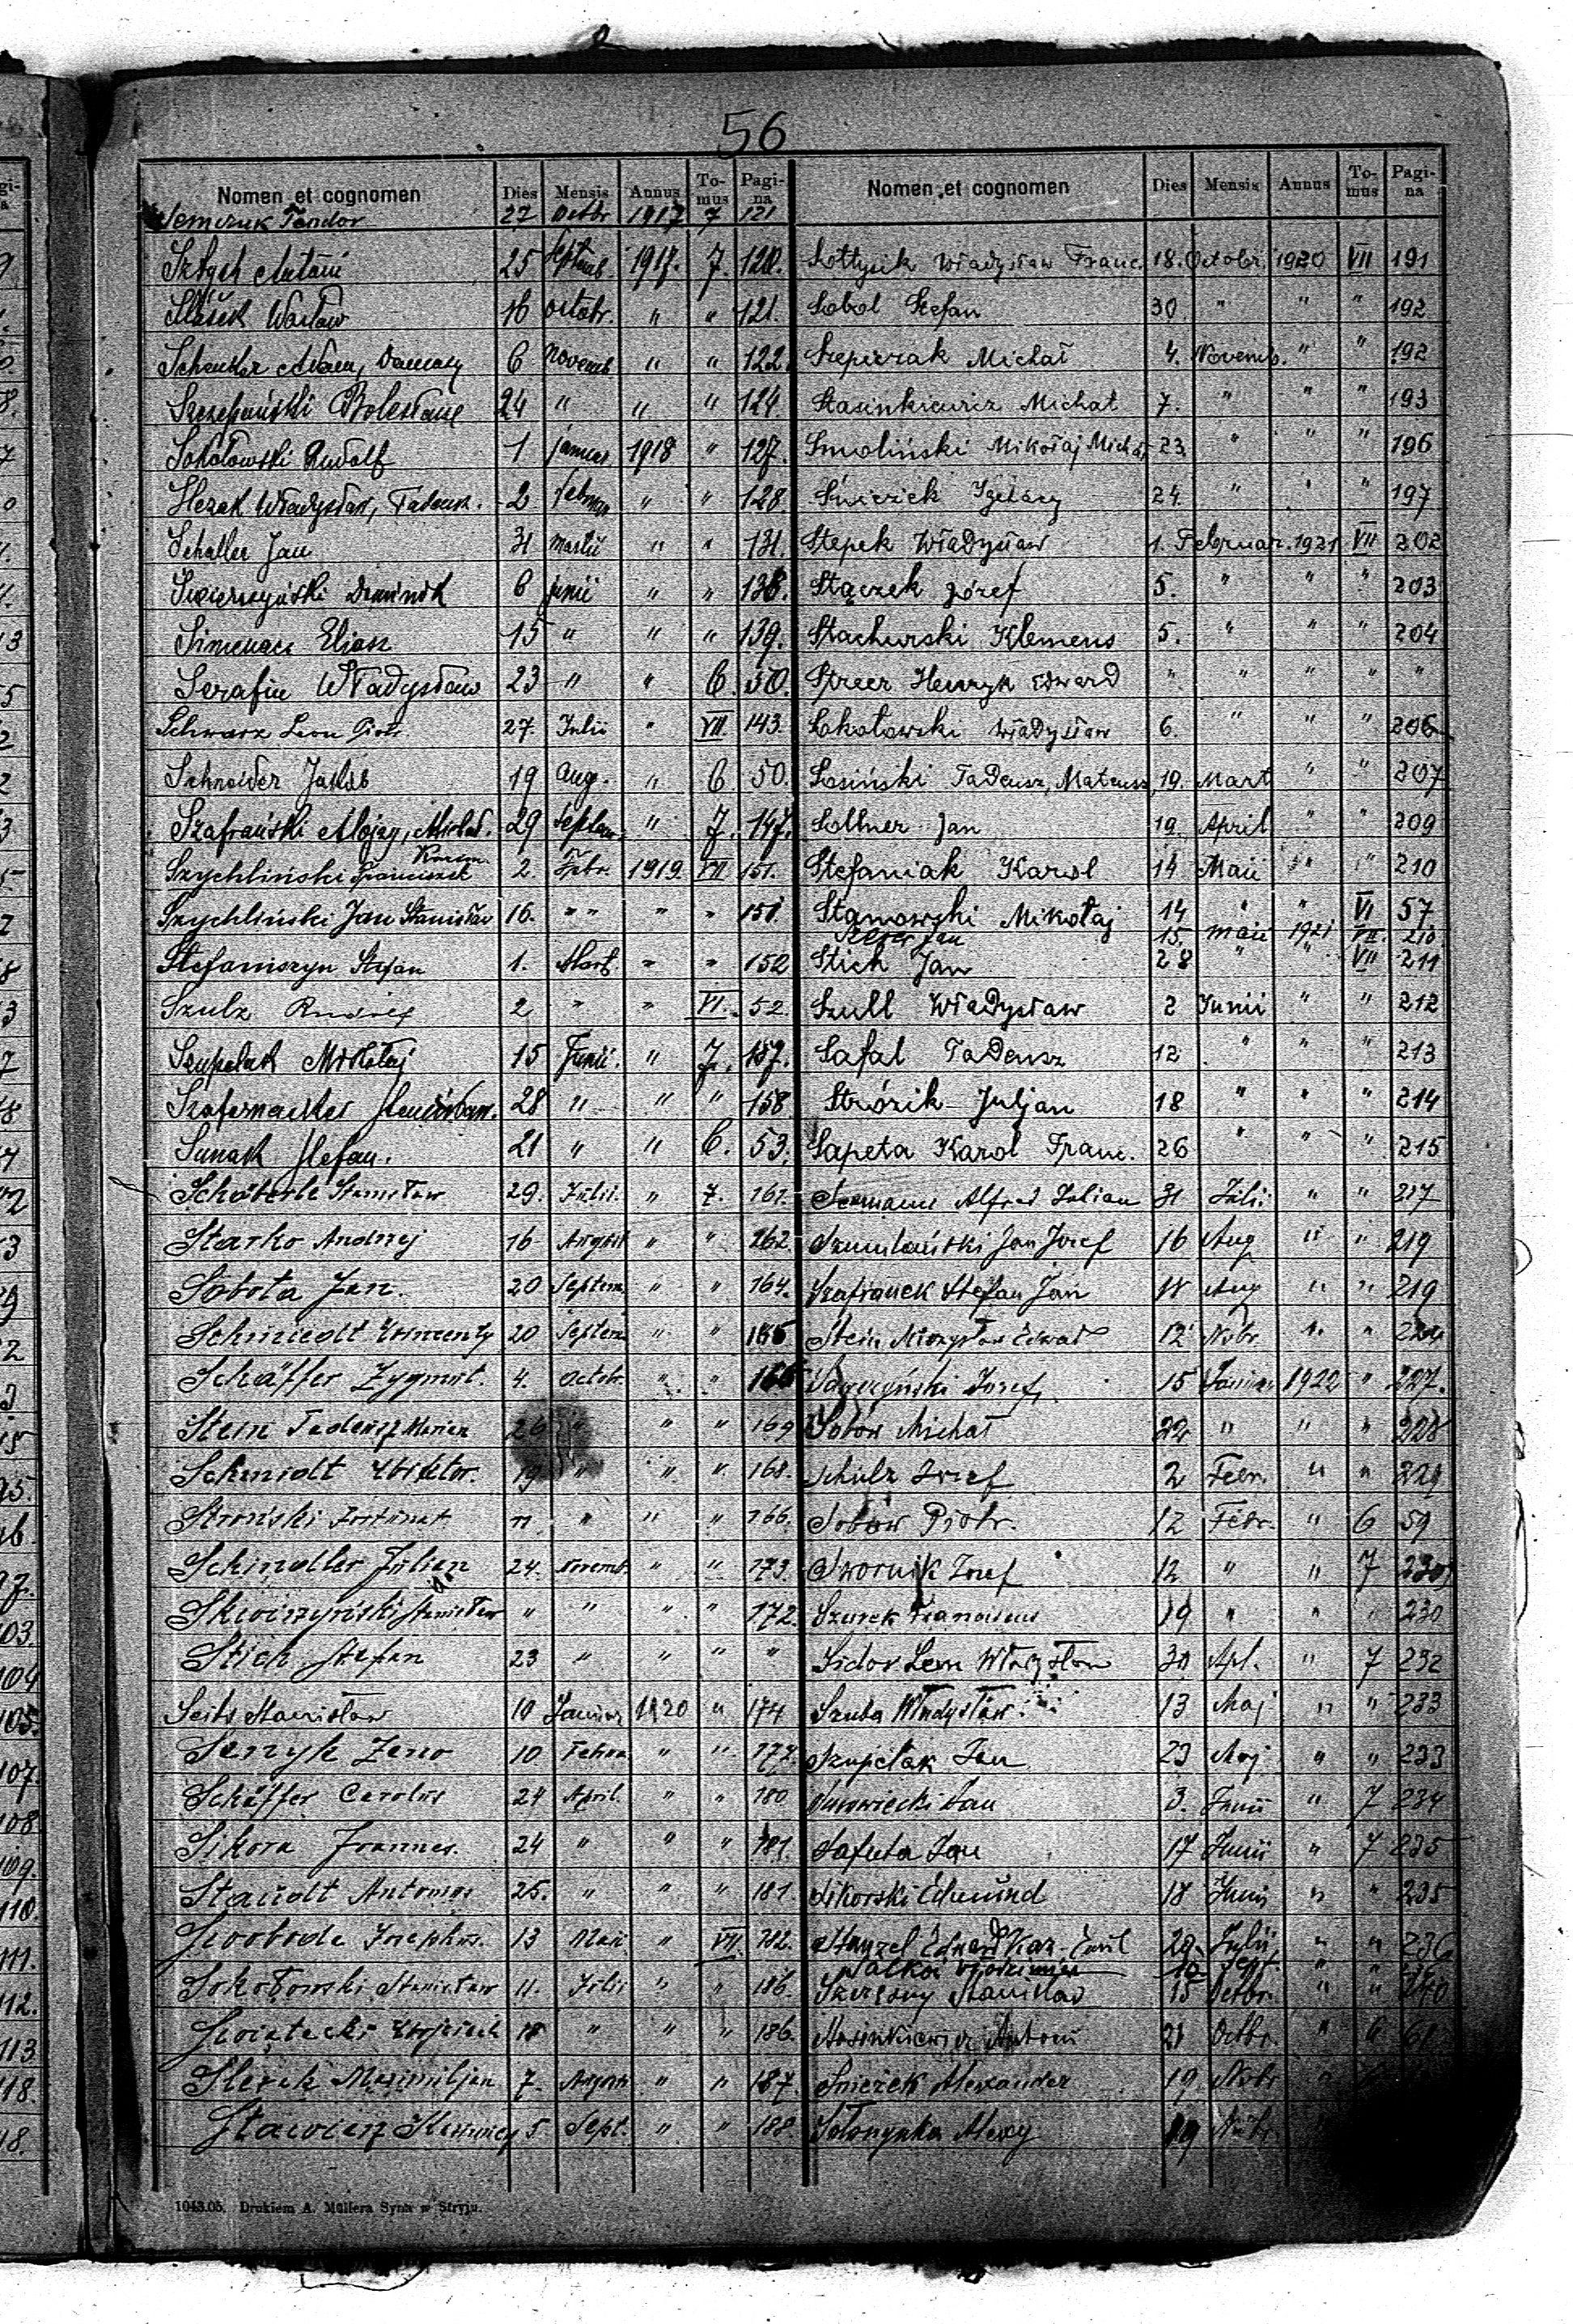 56
Nomen et cognomen Dies Mensis Annus To-mus Pagi-na
Semczuk Teodor 27 Octbr 1917 7 121
Antoni 25 Septemb. 1917. 7. 120.
Wacław 16 octobr. " " 121.
Adam, Damazy 6 novemb. " " 122.
Szczepański Bolesław 24 " " " 124.
Sokołowski Rudolf 1 januar 1918 " 127.
Władysław, Tadeusz. 2 februar " " 128.
Schaller Jan 31 martii " " 131.
Dominik 6 junii " " 138.
Eliasz 15 " " " 139.
Serafin Władysław 23 " " 6. 50.
Schwarz Leon Piotr. 27. Julii " VII. 143.
Schneider Jakób 19 Aug. " 6 50.
Szafrański Alojzy, Michał. 29 Septem. " 7. 147.
Szychliński Franciszek 2. Febr. 1919. VII 151.
Szychliński Jan Stanisław 16. " " " " 151.
Stefaniszyn Stefan 1. Mart. " " 152
Szulz 2 " " VI. 52.
Szupelak Mikołaj 15 Junii. " 7. 157.
28 " " " 158
Sunak Stefan. 21 " " 6. 53.
Schäberle Stanisław 29. Julii. " 7. 161.
Starko Andrzej 16 August " " 262.
Sobota Jan. 20 Septem. " " 164.
Schmiedt Wincenty 20 Septem. " " 165
Schäffer Zygmut. 4. Octobr. " " 166
Stein Tadeusz Marian 26 " " " 169
Schmidt Wiktor. 19 " " " 168.
Stroński Fortunat 11. " " " 166.
Schindler Julian 24. Novemb. " " 173.
Stanisław " " " " 172.
Stich Stefan 23 " " " "
Seits Stanisław 10 Januar 1920 " 174
Senyk Zeno 10 Februar " " 177.
Schäffer Carolus 24 April. " " 180
Sikora Joannes. 24 " " " 181.
Staudt Antonius 25. " " " 181.
Swoboda Josephus. 13 Maii " VII. 182.
Sokołowski Stanisław 11. Julii " " 186.
Swiątecki Wojciech 18 " " " 186.
Maximiljan 7. August " " 187.
5 Sept. " " 188.
Nomen et cognomen Dies Mensis Annus To-mus Pagi-na
Sołtysik Władysław Franc. 18. Octobr. 1920 VII 191
Sobol Stefan 30. " " " 192
Szepczak Michał 4. Novemb. " " 192
Stasinkiewicz Michał 7. " " " 193
Smoliński Mikołaj Michał 23. " " " 196
Śnieżek Ignacy 24. " " " 197
Stepek Władysław 1. Februar. 1921 VII 202
Stączek Józef 5. " " " 203
Stachurski Klemens 5. " " " 204
Spreer Henryk Edward " " " " "
Sokołowski Władysław 6. " " " 206
Sosiński Tadeusz, Mateusz 19. Mart " " 207
Sollner Jan 19. April " " 209
Stefaniak Karol 14 Maii " " 210
Stanowski Mikołaj 14 " " VI 57
Jan 15. maii 1921 VII. 210
Stich Jan 28 " " VII 211
Szull Władysław 2 Junii " " 212
Safal Tadeusz 12. " " " 213
Stróżik Juljan 18 " " " 214
Sapeta Karol Franc. 26 " " " 215
Alfred Julian 31 Juli. " " 217
Jan Josef 16 Aug " " 219
Szafranek Stefan Jan 18 Aug " " 219
Stein Mieczysław Edward 12 Nvbr. " "
Josef 15 Januar 1922 " 227.
Sobów Michał 22 " " " 228
Schulz Josef 2 Febr. " " 229
Sobów Piotr. 12 Febr. " 6 59
Swornik Josef 12 " " 7 230
Szurek Franciscus 19 " " " 230
Sidor Leon Władysław 30 Apl. " 7 232
Szuba Władysław 13 Maj " " 233
Szupelak Jan 23 Maj " " 233
Surowiecki Jan 3. Junii " 7 234
Safuta Jan 17 Junii " 7 235
Sikorski Edmund 18 Junii " " 235
Stenzel Edward Kar. Emil 20. Julii " " 236
Włodzimierz 10 Sept. " "
Szczęsny Stanislas 15 Octbr. " " 240
Stasinkiewicz Antoni 21 Octbr. " 6 61
Śnieżek Alexander 19 Nvbr "
Alexy 19 Nvbr.
1043.05. Drukiem A. Müllera Syna w Stryju.